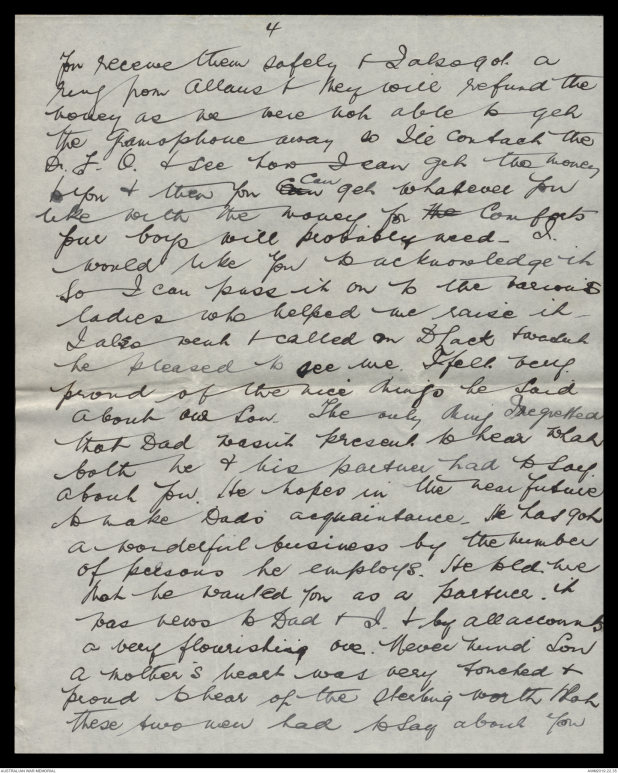 4
you receive them safely & I also got a
ring from Allans & they will refund the
money as we were not able to get
the Gramophone away so I'le contact the
D. F. O. & see how I can get the money
to you & then you can get whatever you
like with the money for the Comforts
your boys will probably need - I.
would like you to acknowledge it
So I can pass it on to the various
ladies who helped me raise it -
I also went & called on D Jack & wasnt
he pleased to see me. I felt very
proud of the nice things he said
about our Son. The only thing I regretted
that Dad wasn't present to hear what
both he & his partner had to say.
about you. He hopes in the near future
to make Dad's acquaintance - He has got
a wonderful business by the number
of persons he employs. He told me
that he wanted you as a partner. it
was news to Dad & I. & by all accounts
a very flourishing one. Never mind Son
a mother's heart was very touched &
proud to hear of the sterling worth that
these two men had to say about you
AUSTRALIAN WAR MEMORIAL